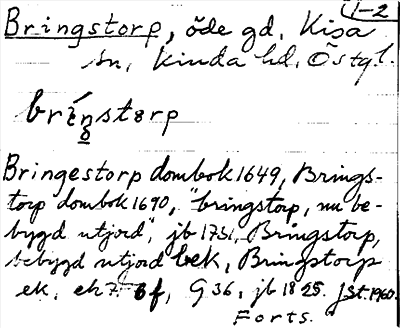 1-2
Bringstorp, öde gd, Kisa
sn, Kinda hd, Östgl.
bríŋstɘrp
Bringestorp dombok 1649, Brings-
torp dombok 1690, "bringstorp, nu be-
bygd utjord", jb 1731, Bringstorp,
bebygd utjord bek, Bringstorp
ek. G 36, jb 1825. JSt. 1960.
Forts.